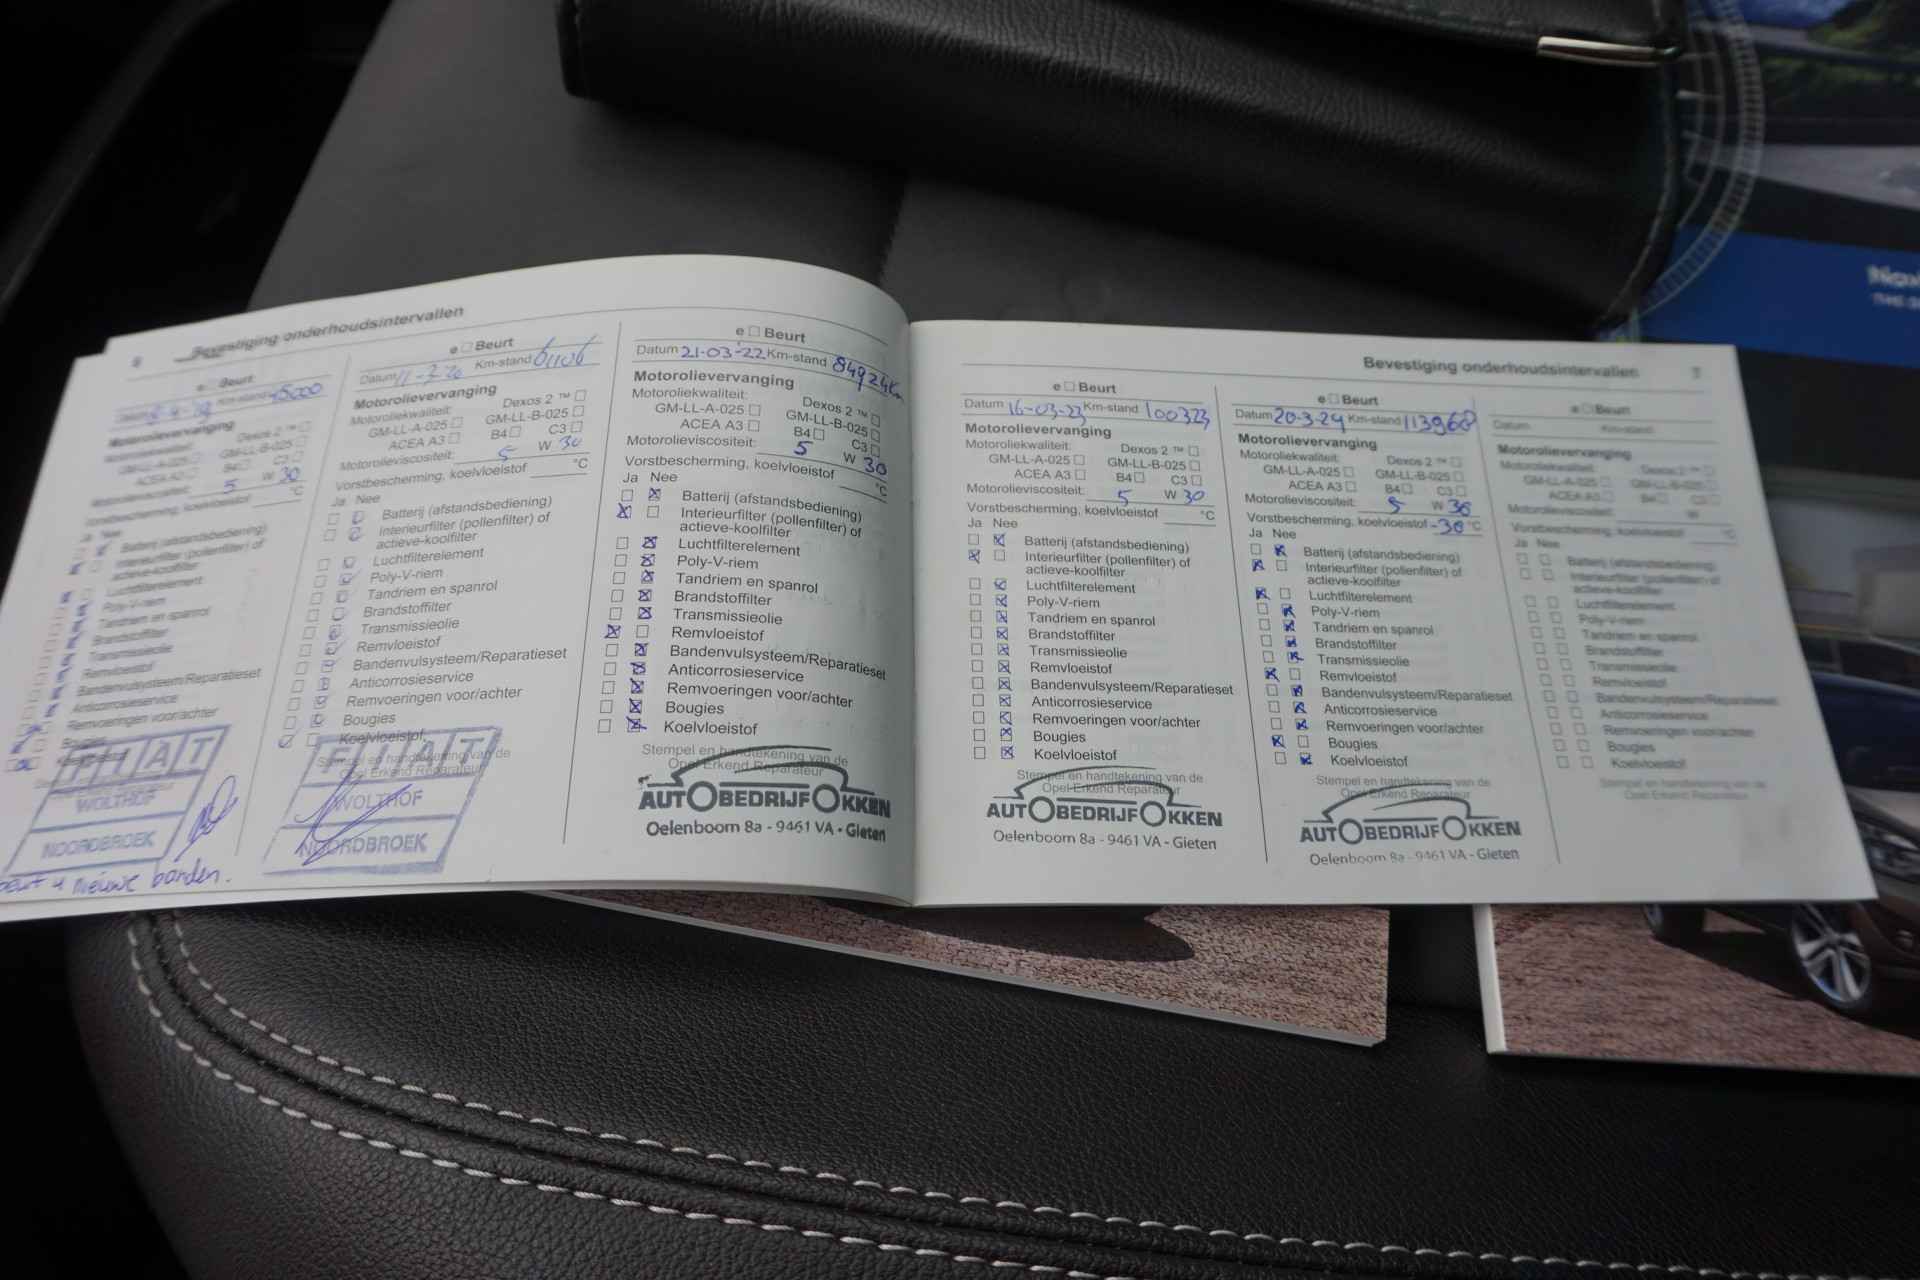 Bevestiging onderhoudsintervallen
e □ Beurt
Km-stand 45000
Motorolievervanging
Motoroliekwaliteit: Dexos 2 ™ □
GM-LL-A-025 □ GM-LL-B-025 □
ACEA A3 □ B4 □ C3 □
Motorolieviscositeit: 5 W 30
Vorstbescherming, koelvloeistof °C
Ja Nee
Batterij (afstandsbediening)
Interieurfilter (pollenfilter) of
actieve-koolfilter
Luchtfilterelement
Poly-V-riem
Tandriem en spanrol
Brandstoffilter
Transmissieolie
Remvloeistof
Bandenvulsysteem/Reparatieset
Anticorrosieservice
Remvoeringen voor/achter
FIAT
WOLTHOF
NOORDBROEK
4 nieuwe banden.
e □ Beurt
Datum 11-3-20 Km-stand 61106
Motorolievervanging
Motoroliekwaliteit: Dexos 2 ™ □
GM-LL-A-025 □ GM-LL-B-025 □
ACEA A3 □ B4 □ C3 □
Motorolieviscositeit: 5 W 30
Vorstbescherming, koelvloeistof °C
Ja Nee
Batterij (afstandsbediening)
Interieurfilter (pollenfilter) of
actieve-koolfilter
Luchtfilterelement
Poly-V-riem
Tandriem en spanrol
Brandstoffilter
Transmissieolie
Remvloeistof
Bandenvulsysteem/Reparatieset
Anticorrosieservice
Remvoeringen voor/achter
Bougies
Koelvloeistof
Stempel en handtekening van de
Opel Erkend Reparateur
FIAT
WOLTHOF
NOORDBROEK
e □ Beurt
Datum 21-03-'22 Km-stand 84924Km
Motorolievervanging
Motoroliekwaliteit: Dexos 2 ™ □
GM-LL-A-025 □ GM-LL-B-025 □
ACEA A3 □ B4 □ C3 □
Motorolieviscositeit: 5 W 30
Vorstbescherming, koelvloeistof °C
Ja Nee
Batterij (afstandsbediening)
Interieurfilter (pollenfilter) of
actieve-koolfilter
Luchtfilterelement
Poly-V-riem
Tandriem en spanrol
Brandstoffilter
Transmissieolie
Remvloeistof
Bandenvulsysteem/Reparatieset
Anticorrosieservice
Remvoeringen voor/achter
Bougies
Koelvloeistof
Stempel en handtekening van de
Opel Erkend Reparateur
AUTOBEDRIJF OKKEN
Oelenboom 8a - 9461 VA - Gieten
Bevestiging onderhoudsintervallen 7
e □ Beurt
Datum 16-03-23 Km-stand 100323
Motorolievervanging
Motoroliekwaliteit: Dexos 2 ™ □
GM-LL-A-025 □ GM-LL-B-025 □
ACEA A3 □ B4 □ C3 □
Motorolieviscositeit: 5 W 30
Vorstbescherming, koelvloeistof °C
Ja Nee
Batterij (afstandsbediening)
Interieurfilter (pollenfilter) of
actieve-koolfilter
Luchtfilterelement
Poly-V-riem
Tandriem en spanrol
Brandstoffilter
Transmissieolie
Remvloeistof
Bandenvulsysteem/Reparatieset
Anticorrosieservice
Remvoeringen voor/achter
Bougies
Koelvloeistof
Stempel en handtekening van de
Opel Erkend Reparateur
AUTOBEDRIJF OKKEN
Oelenboom 8a - 9461 VA - Gieten
e □ Beurt
Datum 20-3-24 Km-stand 113968
Motorolievervanging
Motoroliekwaliteit: Dexos 2 ™ □
GM-LL-A-025 □ GM-LL-B-025 □
ACEA A3 □ B4 □ C3 □
Motorolieviscositeit: 5 W 30
Vorstbescherming, koelvloeistof -30 °C
Ja Nee
Batterij (afstandsbediening)
Interieurfilter (pollenfilter) of
actieve-koolfilter
Luchtfilterelement
Poly-V-riem
Tandriem en spanrol
Brandstoffilter
Transmissieolie
Remvloeistof
Bandenvulsysteem/Reparatieset
Anticorrosieservice
Remvoeringen voor/achter
Bougies
Koelvloeistof
Stempel en handtekening van de
Opel Erkend Reparateur
AUTOBEDRIJF OKKEN
Oelenboom 8a - 9461 VA - Gieten
e □ Beurt
Datum Km-stand
Motorolievervanging
Motoroliekwaliteit: Dexos 2 ™ □
GM-LL-A-025 □ GM-LL-B-025 □
ACEA A3 □ B4 □ C3 □
Motorolieviscositeit: W
Vorstbescherming, koelvloeistof °C
Ja Nee
Batterij (afstandsbediening)
Interieurfilter (pollenfilter) of
actieve-koolfilter
Luchtfilterelement
Poly-V-riem
Tandriem en spanrol
Brandstoffilter
Transmissieolie
Remvloeistof
Bandenvulsysteem/Reparatieset
Anticorrosieservice
Remvoeringen voor/achter
Bougies
Koelvloeistof
Stempel en handtekening van de
Opel Erkend Reparateur